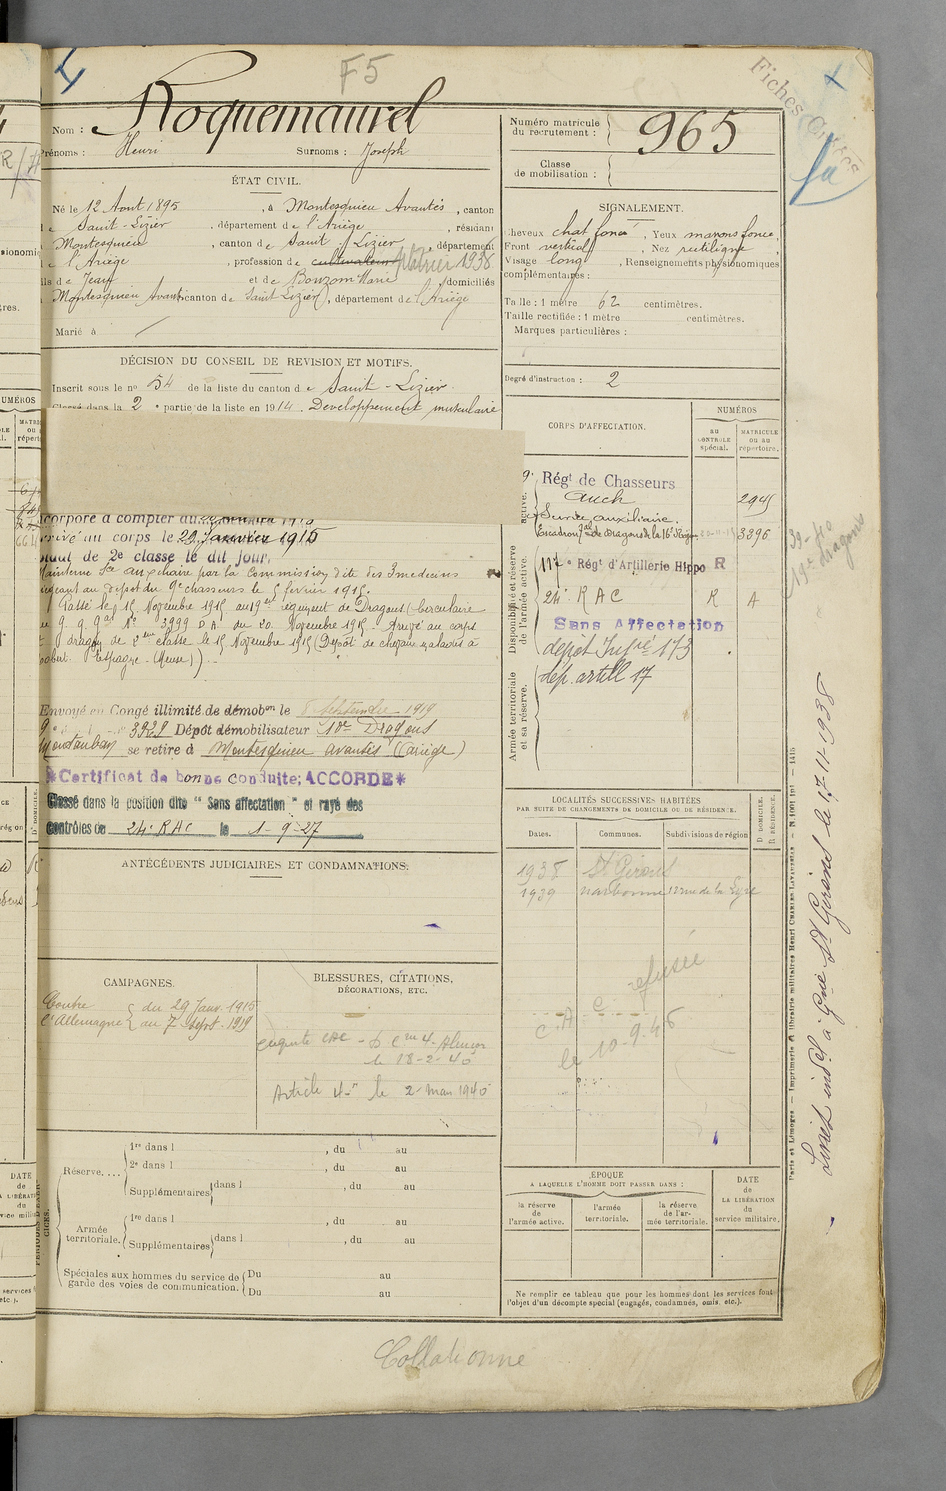 F5
Fiches
Nom : Roquemaurel
Prénoms : Henri Surnoms : Joseph
Numéro matricule du recrutement : 965
Classe de mobilisation :
ÉTAT CIVIL.
Né le 12 Aout 1895, à Montesquieu Avantés, canton
de Saint-Lizier, département de l'Ariège, résidant
Montesquieu, canton de Saint Lizier, département
de l'Ariège, profession de cultivateur plâtrier 1938
fils de Jean et de Bouzom Marie domiciliés
Montesquieu Avantés canton de Saint Lizier, département de l'Ariège
Marié à
SIGNALEMENT.
Cheveux chat foncé, Yeux marrons foncé,
Front vertical, Nez rectiligne,
Visage long, Renseignements physionomiques
complémentaires :
Taille : 1 mètre 62 centimètres.
Taille rectifiée : 1 mètre centimètres.
Marques particulières :
Degré d'instruction : 2
DÉCISION DU CONSEIL DE REVISION ET MOTIFS.
Inscrit sous le no 54 de la liste du canton de Saint-Lizier.
Classé dans la 2e partie de la liste en 1914. Developpement musculaire
Incorporé à compter du
Arrivé au corps le 29 Janvier 1915
soldat de 2e classe le dit jour.
Maintenu Sce auxiliaire par la Commission dite des 3 medecins
siégeant au dépot du 9e chasseurs le 5 fevrier 1915.
Passé le 15 Novembre 1915 au 19e régiment de Dragons (circulaire
No 3999 D.A. du 20 Novembre 1915. Arrivé au corps
dragon de 2eme classe le 15 Novembre 1915 (Dépôt de chevaux malades à
(Meuse)).
Envoyé en Congé illimité de démobon le 8 Septembre 1919
3929 Dépôt démobilisateur 10e Dragons
Montauban se retire à Montesquieu avantés (Ariège)
*Certificat de bonne conduite: ACCORDE*
Classé dans la position dite "Sans affectation" et rayé des
Contrôles de 24e RAC le 1-9-27
CORPS D'AFFECTATION.
NUMÉROS
au contrôle spécial.
MATRICULE ou au répertoire.
Disponibilité et réserve de l'armée active.
9e Régt de Chasseurs
Auch 2945
Service auxiliaire.
3396
117e Régt d'Artillerie Hippo R
24e RAC R A
Sans Affectation
Armée territoriale et sa réserve.
dépôt Infrie 173
dép. artill 17
LOCALITÉS SUCCESSIVES HABITÉES
PAR SUITE DE CHANGEMENTS DE DOMICILE OU DE RÉSIDENCE.
Dates. Communes. Subdivisions de région
D. DOMICILE.
R. RÉSIDENCE.
1938 St Girons
1939 narbonne 12 rue de la Lyre
C.A.C. refusée
le 10-9-46
ANTÉCÉDENTS JUDICIAIRES ET CONDAMNATIONS.
CAMPAGNES.
Contre l'Allemagne { du 29 Janv. 1915
au 7 Sept. 1919
BLESSURES, CITATIONS,
DÉCORATIONS, ETC.
le 18-2-40
Article 4 le 2 Mars 1940
PÉRIODES D'EXERCICES.
Réserve....
1re dans l , du au
2e dans l , du au
Supplémentaires dans l , du au
Armée territoriale.
1re dans l , du au
Supplémentaires dans l , du au
Spéciales aux hommes du service de garde des voies de communication.
Du au
Du au
ÉPOQUE
A LAQUELLE L'HOMME DOIT PASSER DANS :
la réserve de l'armée active.
l'armée territoriale.
la réserve de l'armée territoriale.
DATE de LA LIBÉRATION du service militaire.
Ne remplir ce tableau que pour les hommes dont les services font
l'objet d'un décompte spécial (engagés, condamnés, omis, etc.).
Collationné
Livret indel à Gnie St Girons le 17-11-1938
Paris et Limoges — Imprimerie & librairie militaires Henri Charles Lavauzelle